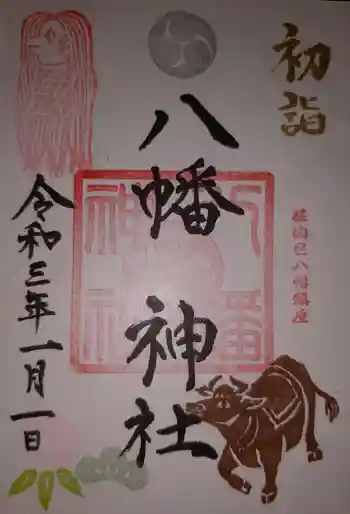 初詣
八幡神社
令和三年一月一日
八幡
神社